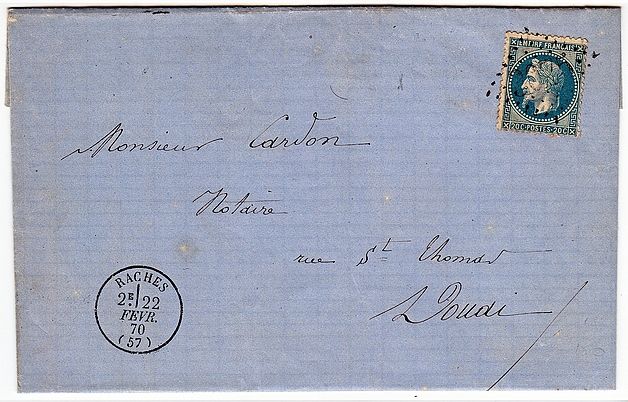 EMPIRE FRANÇAIS
20C POSTES 20C
Monsieur Cardon
Notaire
rue St Thomas
Douai
RACHES
2E 22
FEVR.
70
(57)